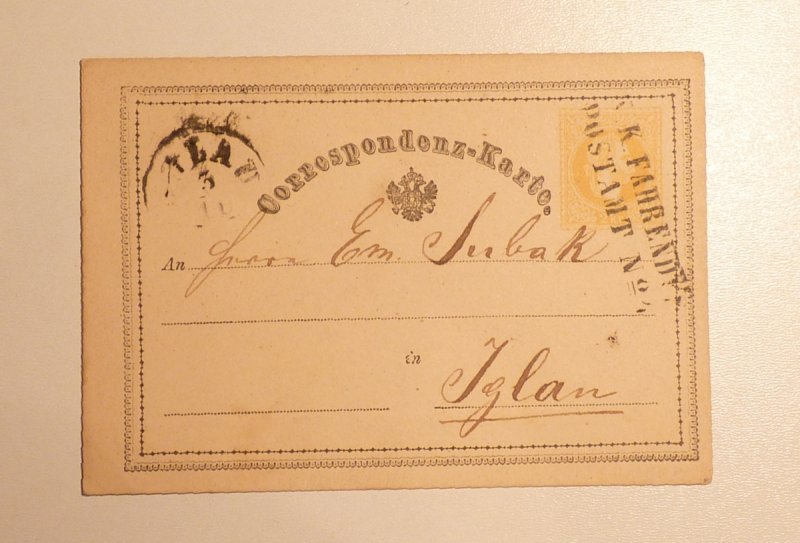 Correspondenz-Karte.
K. FAHRENDES
POSTAMT No
An Herrn Em. Subak
in
Iglau
3